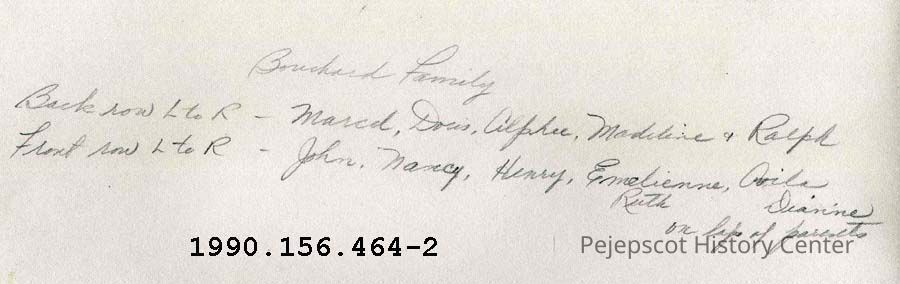 Bouchard Family
Back row L to R - Marcel, Doris, Alphee, Madeline + Ralph
Front row L to R - John, Nancy, Henry, Emelienne, Ovila
Ruth Dianne
on laps of parents
1990.156.464-2
Pejepscot History Center